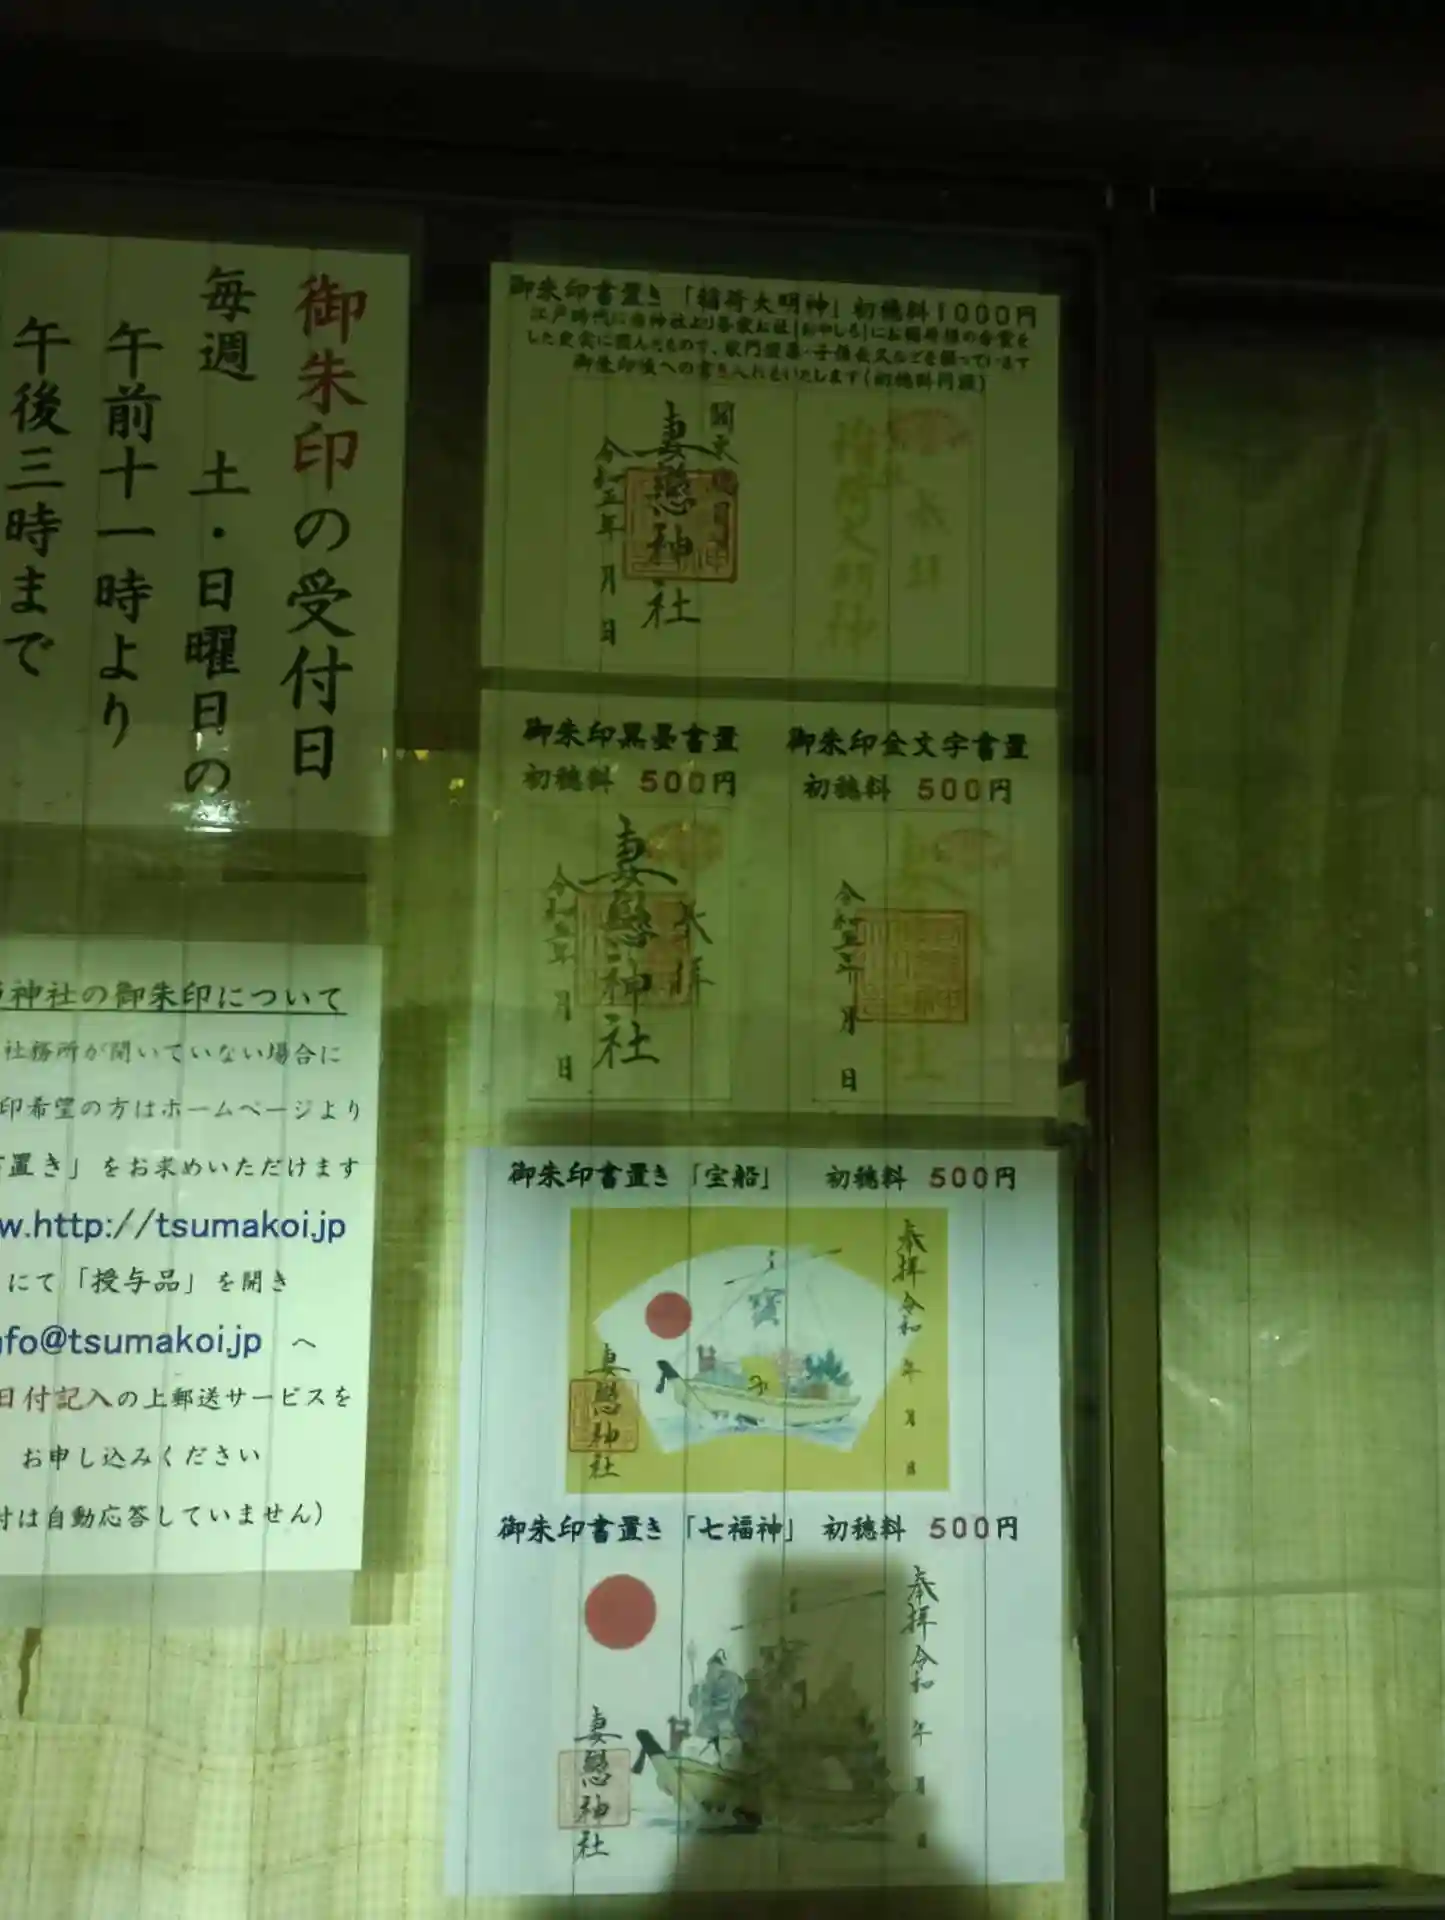 御朱印の受付日
毎週 土・日曜日の
午前十一時より
午後三時まで
神社の御朱印について
社務所が開いていない場合に
印希望の方はホームページより
置き」をお求めいただけます
w.http://tsumakoi.jp
にて「授与品」を開き
nfo@tsumakoi.jp へ
日付記入の上郵送サービスを
お申し込みください
付は自動応答していません)
御朱印書置き「稲荷大明神」初穂料1000円
した史実に因んだもので、家門繁栄・子孫長久などを願っています
御朱印帳への書き入れもいたします(初穂料同額)
妻戀神社
令和五年 月 日
稲荷大明神
御朱印黒墨書置
初穂料 500円
奉拝
妻戀神社
令和五年 月 日
御朱印金文字書置
初穂料 500円
令和五年 月 日
御朱印書置き「宝船」 初穂料 500円
奉拝 令和 年 月 日
寳
妻戀神社
御朱印書置き「七福神」 初穂料 500円
奉拝 令和 年 月 日
妻戀神社